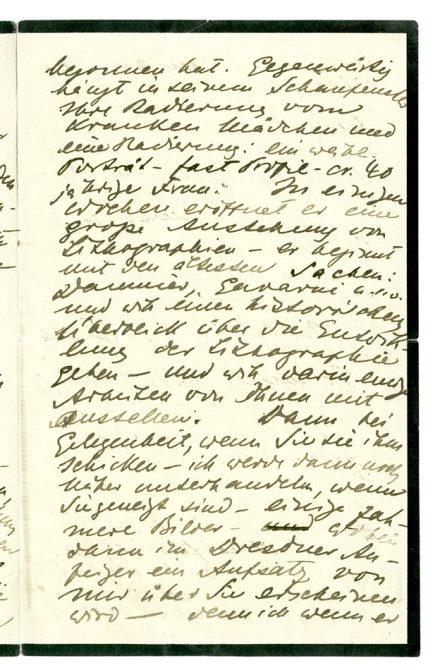 begonnen hat. Gegenwärtig
hängt in seinem Schaufenster
Ihre Radierung vom
Kranken Mädchen und
eine Radierung: ein
Porträt - fast Profil - cr. 40
jährige Frau. In einigen
Wochen eröffnet er eine
große Ausstellung von
Lithographien - er beginnt
mit den ältesten Sachen:
Daumier, Gavarni u.s.w.
und will einen historischen
Überblick über die Entwick-
lung der Lithographie
geben - und will darin einige
Arbeiten von Ihnen mit
ausstellen. Dann bei
Gelegenheit, wenn Sie sie ihm
schicken - ich werde dann noch
näher unterhandeln, wenn
Sie geneigt sind - einige zah-
mere Bilder -
dann im Dresdner An-
zeiger ein Aufsatz von
mir über Sie erscheinen
wird - denn ich wenn er